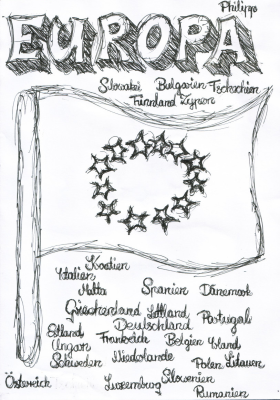 Philipp
EUROPA
Slowakei Bulgarien Tschechien
Finnland Zypern
Kroatien
Italien
Malta Spanien Dänemark
Griechenland Lettland Portugal
Deutschland
Estland Frankreich Belgien Irland
Ungarn
Schweden Niederlande Polen Litauen
Österreich Luxemburg Slowenien
Rumänien